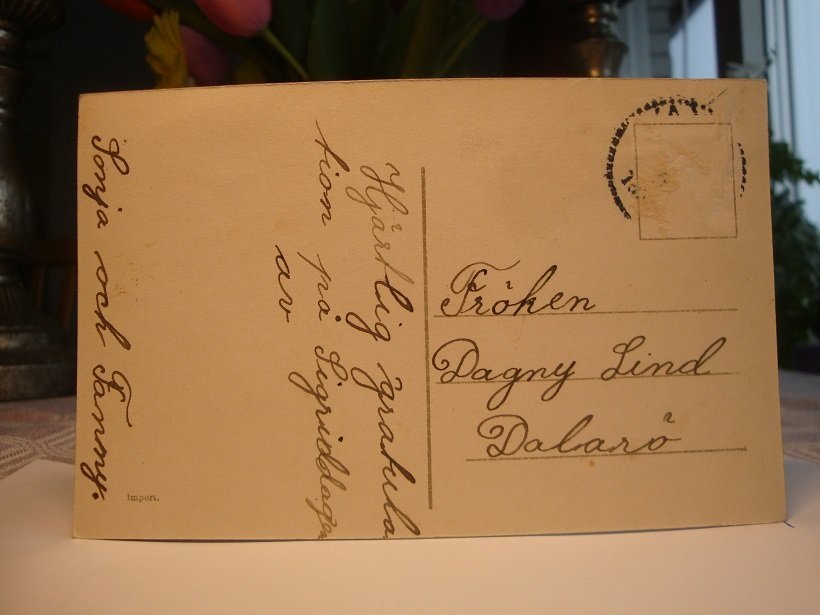 Hjärtlig gratula
tion på Sigriddagen
av
Sonja och Fanny.
Import.
Fröken
Dagny Lind
Dalarö